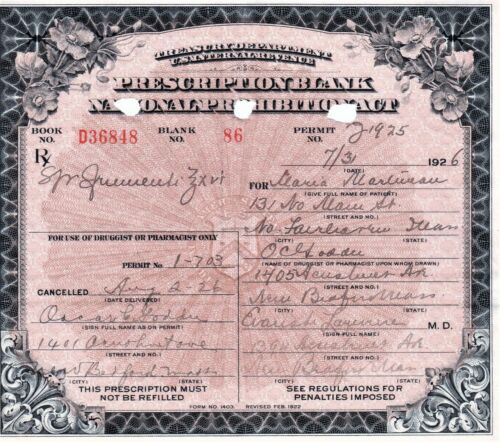 TREASURY DEPARTMENT
U.S. INTERNAL REVENUE
PRESCRIPTION BLANK
NATIONAL PROHIBITION ACT
BOOK NO. D36848 BLANK NO. 86 PERMIT NO.
7/31 1926
(DATE)
℞
FOR Maria
(GIVE FULL NAME OF PATIENT)
131 No Main St
(STREET AND NO.)
No Fairhaven Mass
(CITY) (STATE)
(NAME OF DRUGGIST OR PHARMACIST UPON WHOM DRAWN)
1405 Acushnet
(STREET AND NO.)
New Mass
(CITY) (STATE)
M. D.
(SIGN FULL NAME)
(STREET AND NO.)
(CITY) (STATE)
SEE REGULATIONS FOR
PENALTIES IMPOSED
FOR USE OF DRUGGIST OR PHARMACIST ONLY
PERMIT No. 1-703
CANCELLED Aug 2 26
(DATE DELIVERED)
Oscar
(SIGN FULL NAME AS ON PERMIT)
(STREET AND NO.)
Bedford Mass
(CITY) (STATE)
THIS PRESCRIPTION MUST
NOT BE REFILLED
FORM NO. 1403 REVISED FEB. 1922